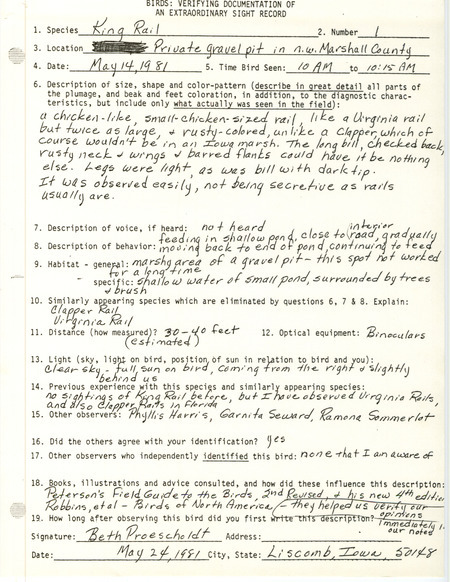 BIRDS: VERIFYING DOCUMENTATION OF
AN EXTRAORDINARY SIGHT RECORD
1. Species King Rail 2. Number 1
3. Location Private gravel pit in n.w. Marshall County
4. Date: May 14, 1981 5. Time Bird Seen: 10 AM to 10:15 AM
6. Description of size, shape and color-pattern (describe in great detail all parts
of the plumage, and beak and feet coloration, in addition, to the diagnostic charac-
teristics, but include only what actually was seen in the field):
a chicken-like, small-chicken-sized rail, like a Virginia rail
but twice as large, & rusty-colored, unlike a Clapper, which of
course wouldn't be in an Iowa marsh. The long bill, checked back,
rusty neck & wings & barred flanks could have it be nothing
else. Legs were light, as was bill with dark tip.
It was observed easily, not being secretive as rails
usually are.
7. Description of voice, if heard: not heard
8. Description of behavior: feeding in shallow pond, close to interior road, gradually
moving back to end of pond, continuing to feed
9. Habitat - general: marshy area of a gravel pit - this spot not worked
for a long time
- specific: shallow water of small pond, surrounded by trees
& brush
10. Similarly appearing species which are eliminated by questions 6, 7 & 8. Explain:
Clapper Rail
Virginia Rail
11. Distance (how measured)? 30-40 feet 12. Optical equipment: Binoculars
(estimated)
13. Light (sky, light on bird, position of sun in relation to bird and you):
Clear sky - full sun on bird, coming from the right & slightly
behind us
14. Previous experience with this species and similarly appearing species:
no sightings of King Rail before, but I have observed Virginia Rails,
and also Clapper Rails in Florida
15. Other observers: Phyllis Harris, Garnita Seward, Ramona Sommerlot
16. Did the others agree with your identification? yes
17. Other observers who independently identified this bird: none that I am aware of
18. Books, illustrations and advice consulted, and how did these influence this description:
Peterson's Field Guide to the Birds, 2nd Revised, & his new 4th edition
Robbins, et al - Birds of North America - they helped us verify our
opinions
19. How long after observing this bird did you first write this description? immediately
our noted
Signature: Beth Proescholdt Address:
Date: May 24, 1981 City, State: Liscomb, Iowa, 50148